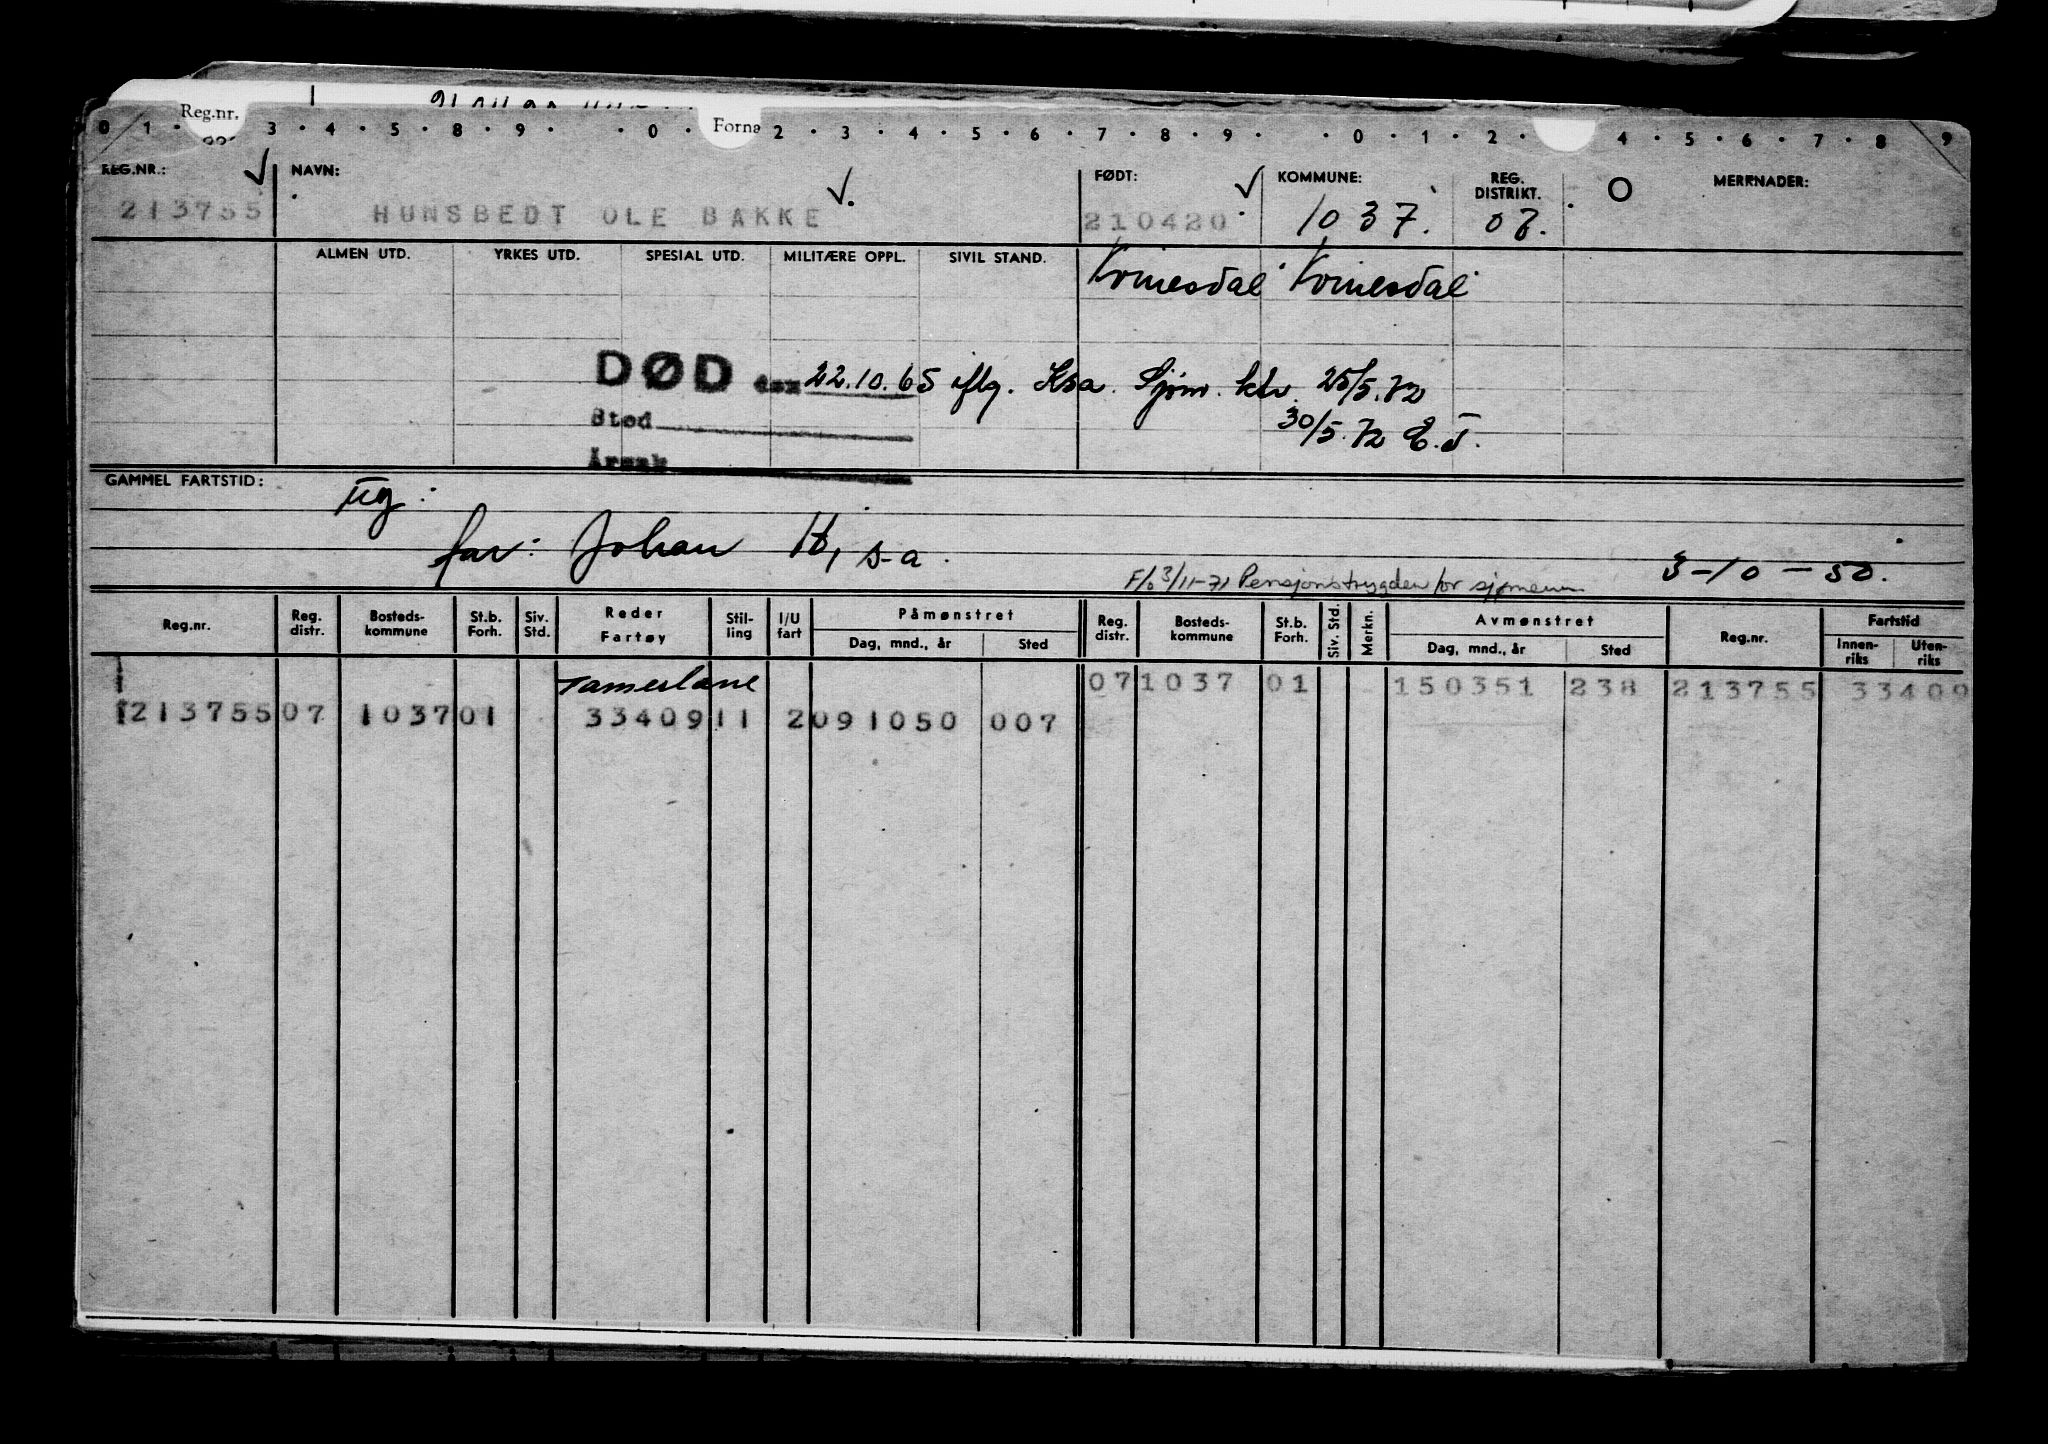 Reg.nr.
Forna
0 1 · 3 · 4 · 5 · 8 · 9 · · 0 · 2 · 3 · 4 · 5 · 6 · 7 · 8 · 9 · · 0 · 1 · 2 · 4 · 5 · 6 · 7 · 8 9
REG.NR.: NAVN: FØDT: KOMMUNE: REG. DISTRIKT. O MERKNADER:
213755 HUNSBEDT OLE BAKKE 210420 1037. 07.
ALMEN UTD. YRKES UTD. SPESIAL UTD. MILITÆRE OPPL. SIVIL STAND.
Kvinesdal Kvinesdal
DØD den 22.10.65 iflg. Ksa. Sjøm. ktr. 25/5.72
Sted 30/5.72 E.T.
Årsak
GAMMEL FARTSTID:
ug:
far: Johan H, s-a.
3-10-50.
F/o 3/11-71 Pensjonstrygden for sjømenn
Reg.nr. Reg. distr. Bosteds-kommune St.b. Forh. Siv. Std. Reder Fartøy Stil-ling I/U fart Påmønstret Dag, mnd., år Sted Reg. distr. Bosteds-kommune St.b. Forh. Siv. Std. Merkn. Avmønstret Dag, mnd., år Sted Reg.nr. Fartstid Innen-riks Uten-riks
Tamerlane 07 1037 01 150351 238 213755 33409
213755 07 1037 01 33409 11 2 091050 007